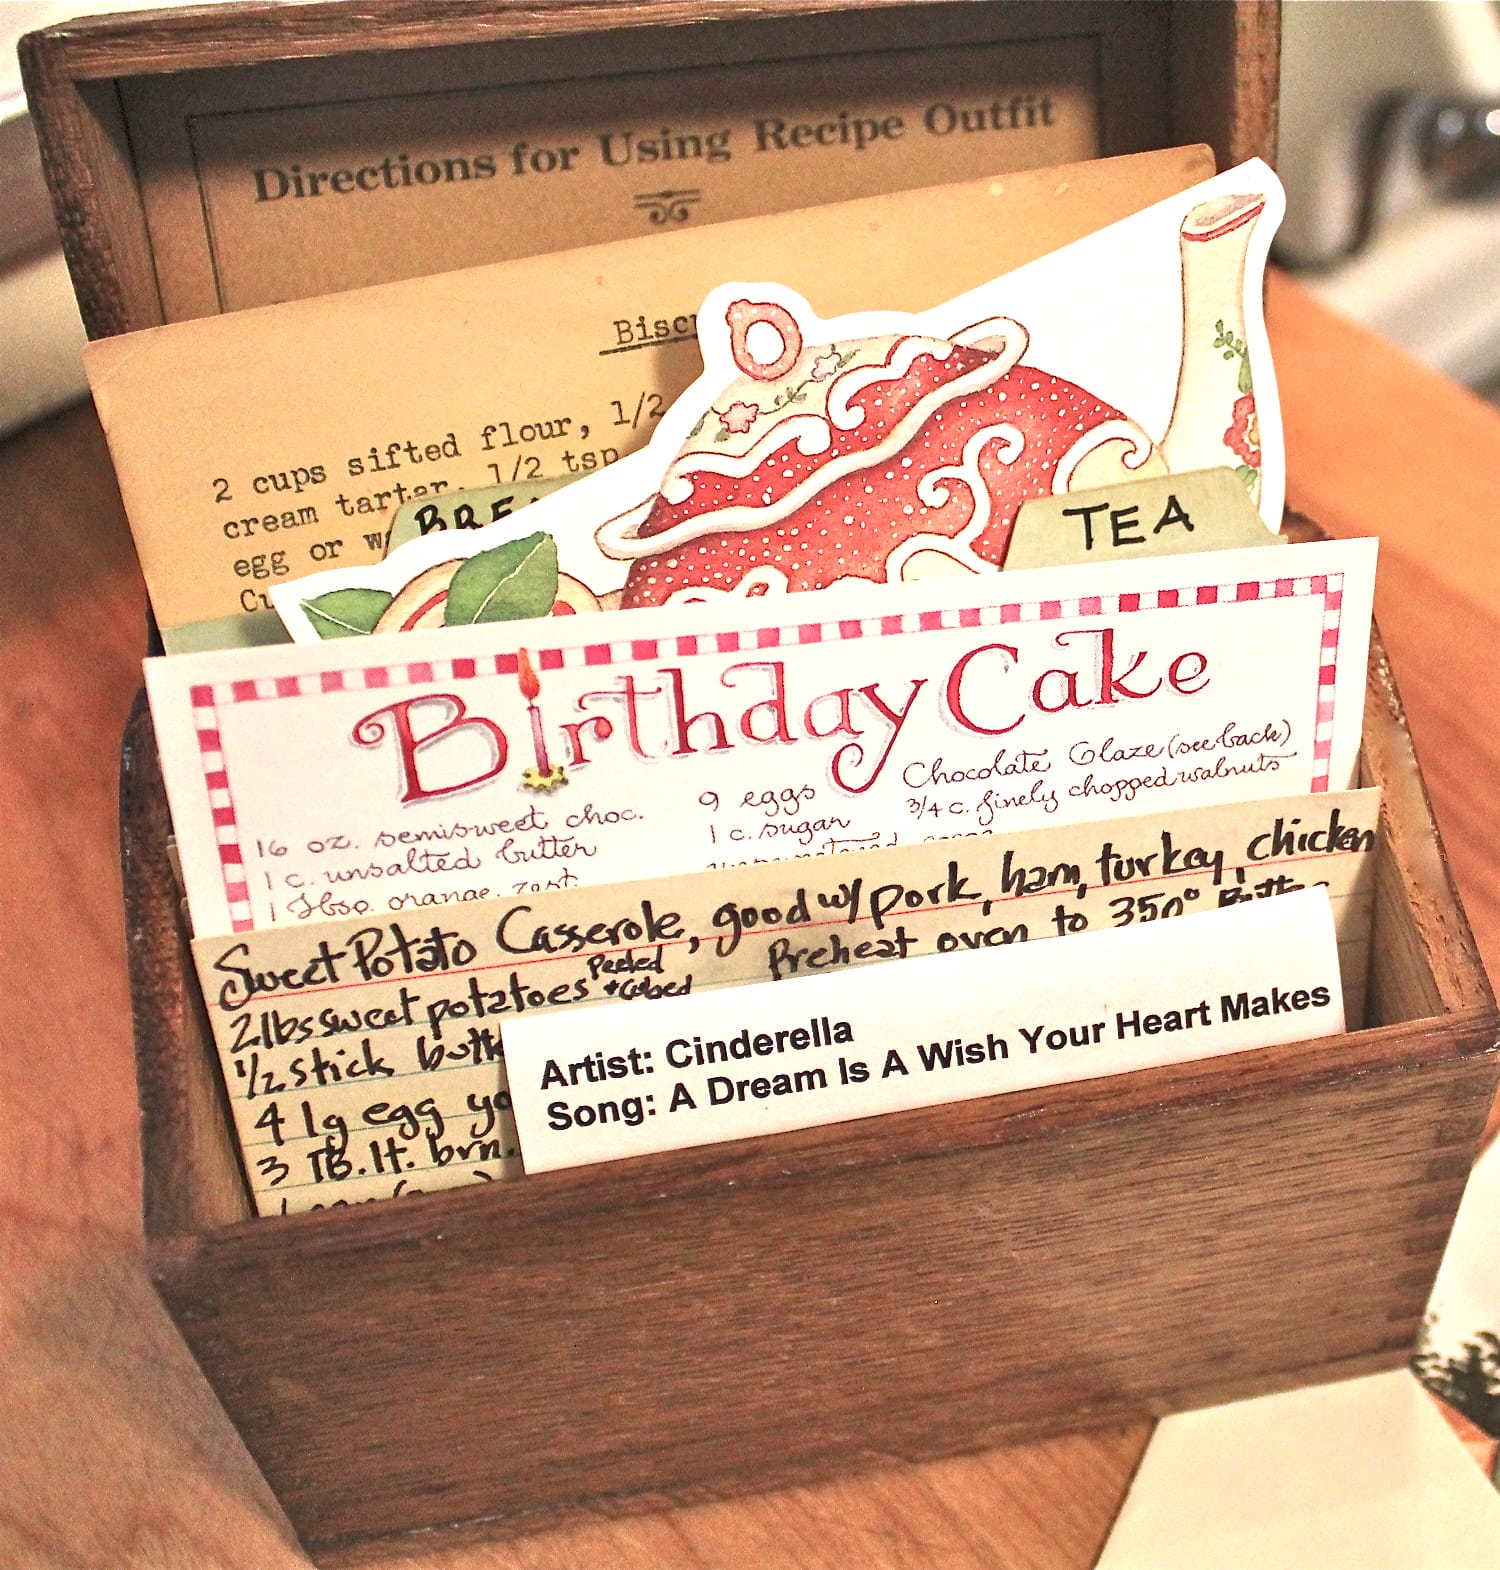 Directions for Using Recipe Outfit
2 cups sifted flour, 1/2
cream tartar, 1/2 tsp
egg or
TEA
Birthday Cake
16 oz. semisweet choc.
1 c. unsalted butter
1 tbsp. orange zest
9 eggs
1 c. sugar
Chocolate Glaze (see back)
3/4 c. finely chopped walnuts
Sweet Potato Casserole, good w/ pork, ham, turkey, chicken
2 lbs sweet potatoes Peeled + Cubed
1/2 stick
4 lg egg
3 TB. lt. brn.
Preheat oven to 350°
Artist: Cinderella
Song: A Dream Is A Wish Your Heart Makes